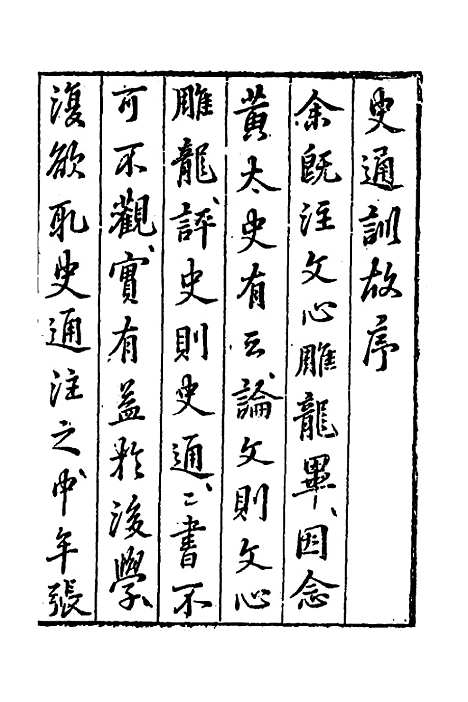 史通訓故序
余既注文心雕龍畢、因念
黃太史有云、論文則文心
雕龍、評史則史通、二書不
可不觀、實有益於後學
復欲取史通注之、中年張